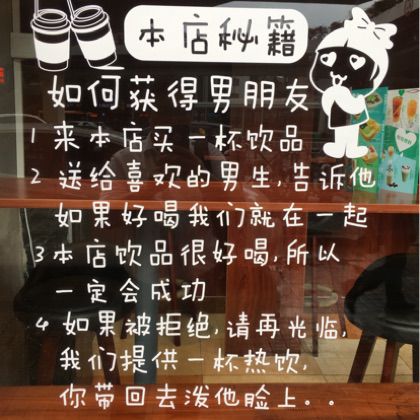 本店秘籍
如何获得男朋友
1 来本店买一杯饮品
2 送给喜欢的男生,告诉他
如果好喝我们就在一起
3 本店饮品很好喝,所以
一定会成功
4 如果被拒绝,请再光临,
我们提供一杯热饮,
你带回去泼他脸上..